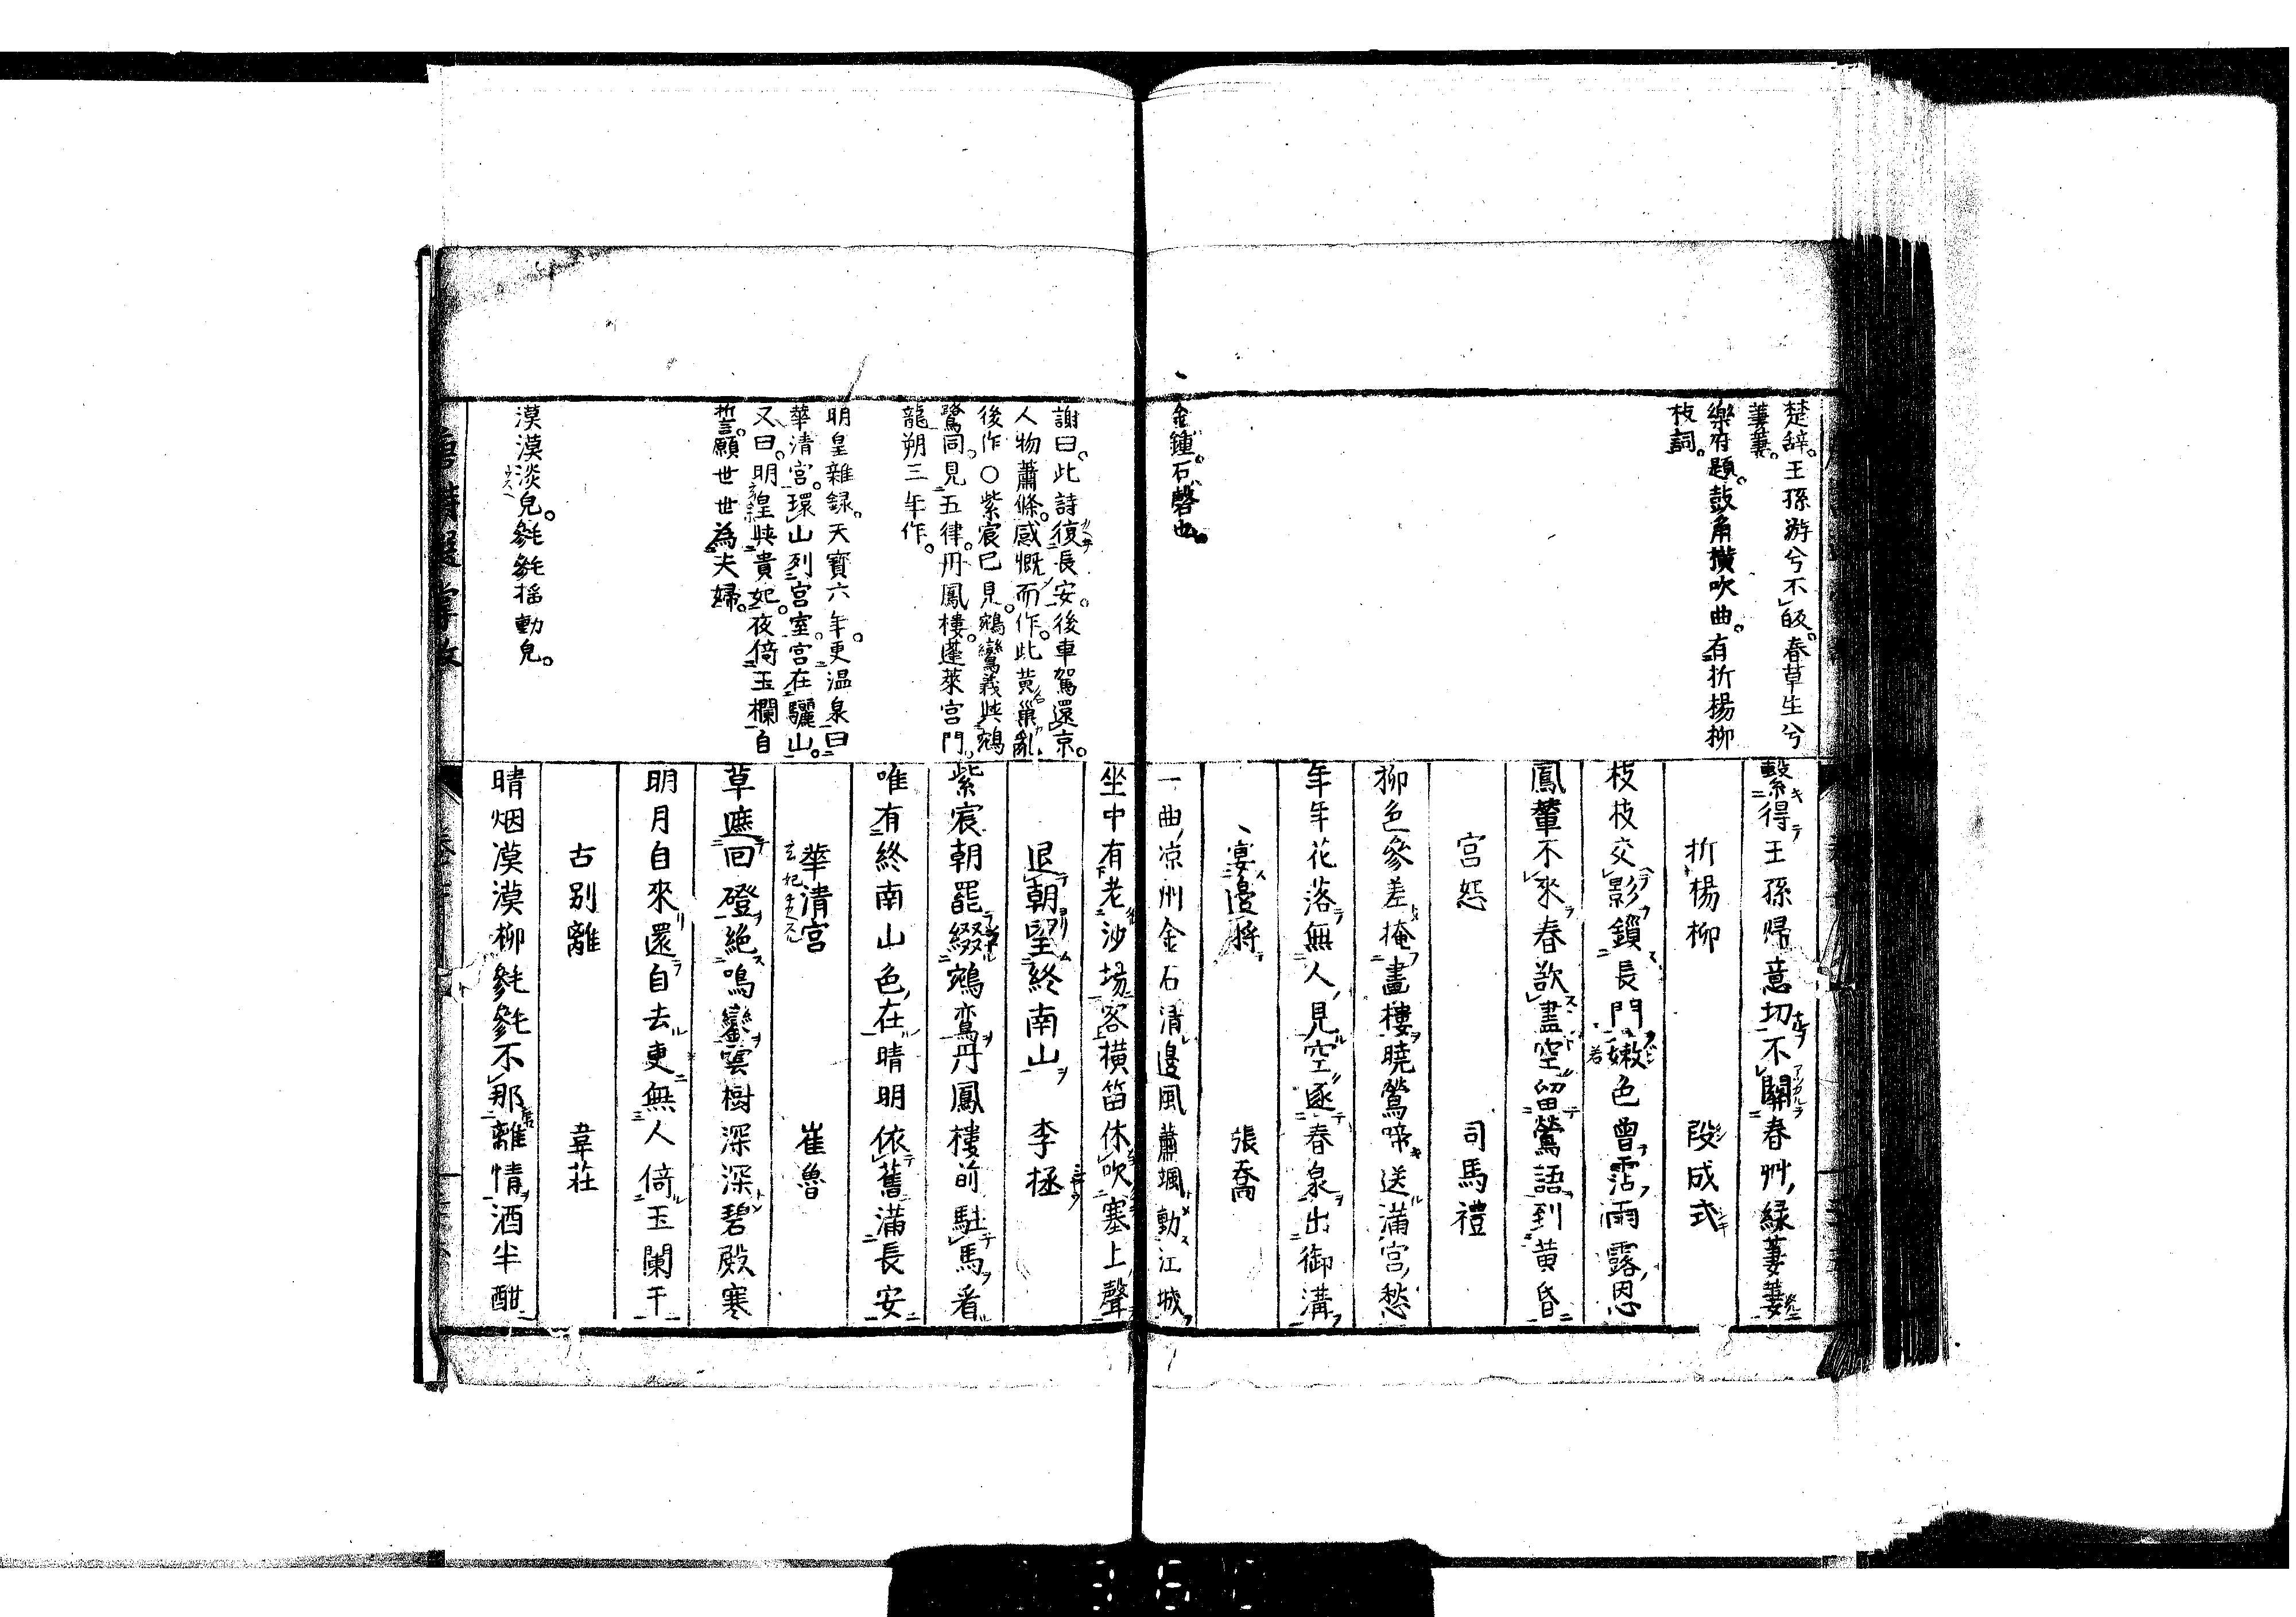 楚辭。王孫游兮不皈。春草生兮
萋萋。
樂府題。鼓角橫吹曲。有折楊柳
枝詞。
繫得王孫歸意切不關春艸綠萋萋
折楊柳 段成式
枝枝交影鎖長門嫩色曾霑雨露恩
鳳輦不來春欲盡空留鶯語到黃昏
宮怨 司馬禮
柳色參差掩畫樓曉鶯啼送滿宮愁
年年花落無人見空逐春泉出御溝
宴邊將 張喬
金鍾。石磬也。
一曲凉州金石清邊風蕭颯動江城
坐中有老沙場客橫笛休吹塞上聲
謝曰。此詩復長安。後車駕還京。
人物蕭條。感慨而作。此黃巢亂
後作〇紫宸已見。鵷鸞義與鵷
鷺同。見五律。丹鳳樓。蓬萊宮門。
龍朔三年作。
退朝望終南山 李拯
紫宸朝罷綴鵷鸞丹鳳樓前駐馬看
唯有終南山色在晴明依舊滿長安
明皇雜錄。天寶六年。更温泉曰
華清宮。環山列宮室。宮在驪山。
又曰。明皇與貴妃。夜倚玉欄自
誓。願世世為夫婦。
華清宮 崔魯
草遮回磴絕鳴鑾雲樹深深碧殿寒
明月自來還自去更無人倚玉闌干
漠漠淡皃。毿毿搖動皃。
古別離 韋莊
晴烟漠漠柳毿毿不那離情酒半酣